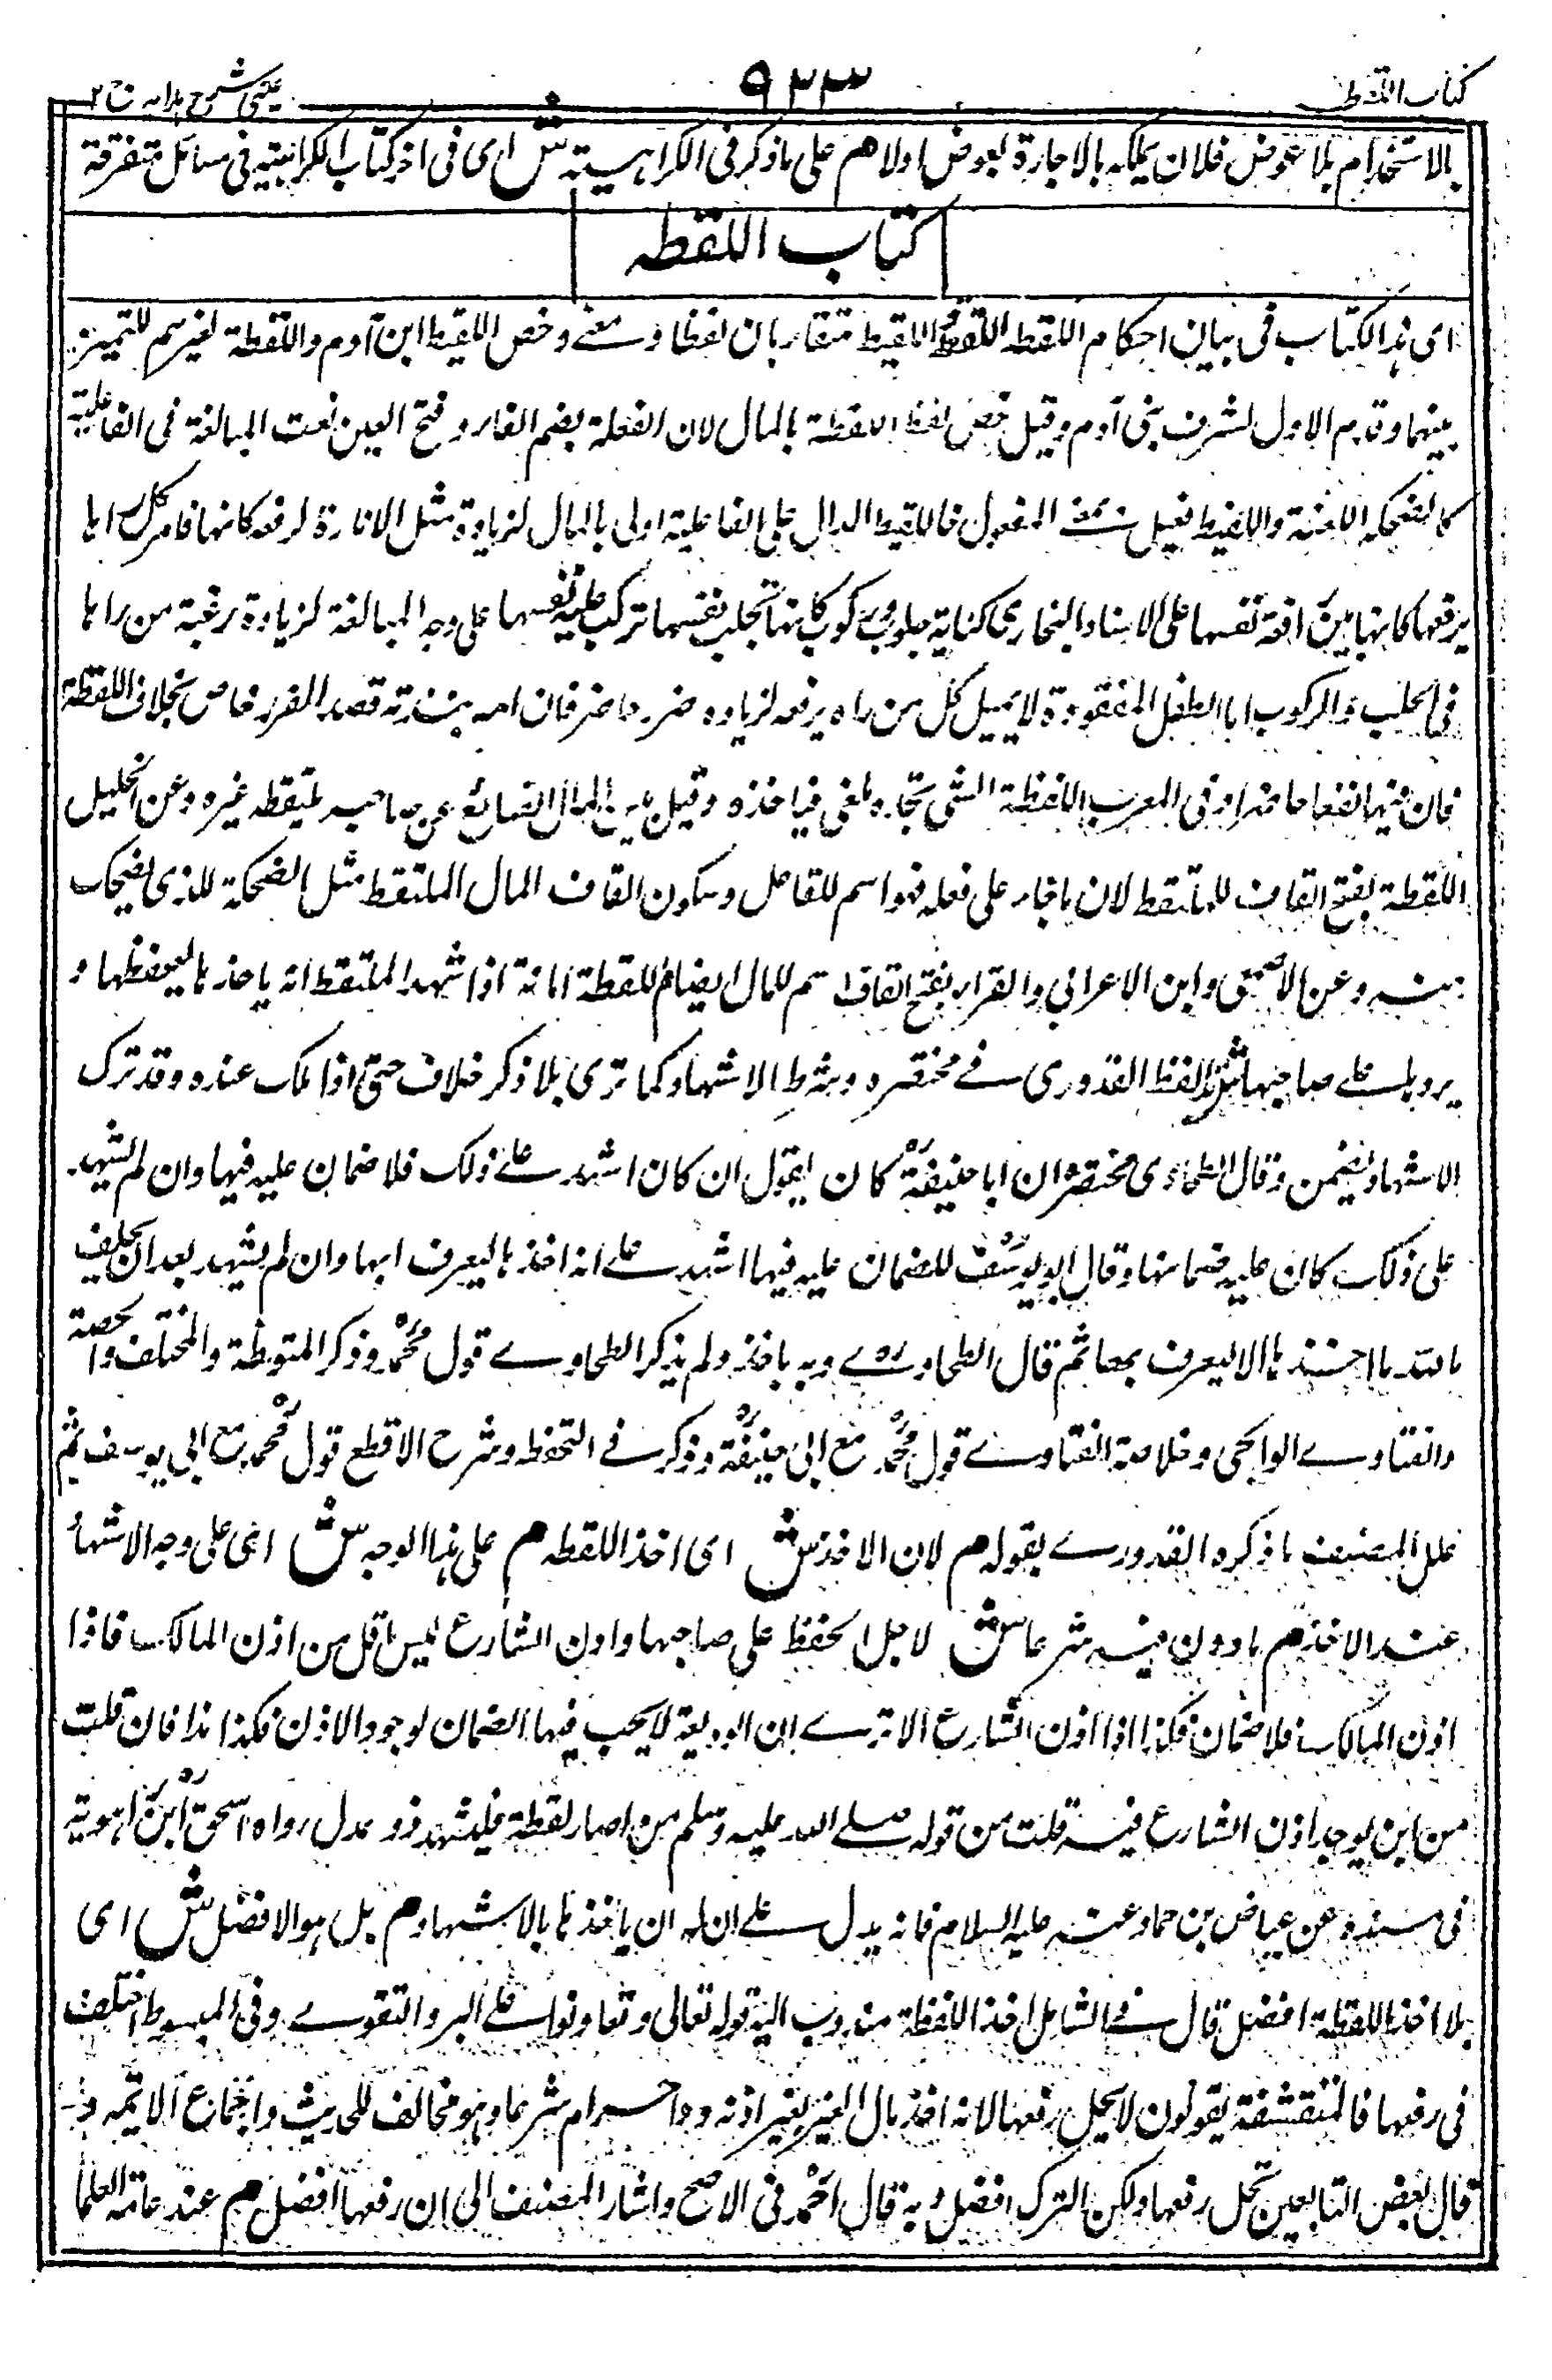 كتاب اللقطة
٩٣٣
عینی شرح ہدایہ ج ٢
بالاستخدام بلا عوض فلان يملكه بالاجارة بعوض اولا هم على ما ذكر فى الكراهية ش اى فى اخر كتاب الكراهية فى مسائل متفرقة
كتاب اللقطه
اى هذا الكتاب فى بيان احكام اللقطه اللقيط متقاربان لفظا و معنے وخص اللقيط ابن آدم واللقطة لغيرهم للتميز
بينهما وقدم الاول لشرف بنى آدم وقيل خص لفظ اللقطة بالمال لان الفعلة بضم الفاء وفتح العين نعت المبالغة فى الفاعلية
كالضحكه اللعنة واللقيط فعيل بمعنے المفعول فاللقيط الدال على الفاعلية اولى بالمال لزيادة مثل الاثارة لرفعه كانها فامر كل راها
يرفعها كانها رافعة نفسها على الاسناد المجازى كناية حلوب وركوب كانها تحلب نفسها تركب عليه نفسها على وجه المبالغة لزيادة رغبة من راها
فى الحلب والركوب اما الطفل المفقودة لا يميل كل من راه يرفعه لزيادة ضرر حاضر فان امه نبذته قصد الضرر خاص بخلاف اللقطة
فان فيها نفعا حاضرا وفى المعرب اللقطة الشى تجده ملغى فياخذه وقيل هى المال الضائع عن صاحبه يلتقطه غيره وعن الخليل
اللقطة بفتح القاف للملتقط لان ما جاء على فعله فهو اسم للفاعل وسكون القاف المال الملتقط مثل الضحكة للذى يضحك
منه وعن الاصمعى وابن الاعرابي والفراء بفتح القاف اسم للمال ايضا م اللقطة امانة اذا شهد الملتقط انه ياخذها ليحفظها و
يردها على صاحبها ش هذا لفظ القدورى فے مختصره وشرط الاشهاد كما ترى بلا ذكر خلاف حتى اذا هلك عنده وقد ترك
الاشهاد يضمن وقال الطحاوى مختصره ان ابا حنيفةؒ كان يقول ان كان اشهد علے ذلك فلا ضمان عليه فيها وان لم يشهد
على ذلك كان عليه ضمانها وقال ابو يوسفؒ للضمان عليه فيها اشهد علے انه اخذها ليعرف ابها وان لم يشهد بعد ان يحلف
بالله ما اخذها الا ليعرف بها ثم قال الطحاوے وبه ناخذ ولم يذكر الطحاوے قول محمدؒ وذكر المنظومة والمختلف والحصة
والفتاوے الولوالجى وخلاصة الفتاوے قول محمدؒ مع ابى حنيفةؒ وذكر فے التحفة وشرح الاقطع قول محمدؒ مع ابى يوسف ثم
علل المصنف ما ذكره القدورے بقوله م لان الاخذ ش اى اخذ اللقطه م على هذا الوجه ش اعنى على وجه الاشهاد
عند الاخذ م ماذون فيه شرعا ش لاجل الحفظ على صاحبها واذن الشارع ليس باقل من اذن المالك فاذا
اذن المالك فلا ضمان فكذا اذا اذن الشارع الا ترے ان الوديعة لا يجب فيها الضمان لوجود الاذن فكذا هذا فان قلت
من اين يوجد اذن الشارع فيه قلت من قوله صلے الله عليه وسلم من اصاب لقطة فليشهد ذو عدل رواه اسحقؒ ابن راهويه
فى مسنده عن عياض بن حماد عنه عليه السلام فانه يدل علے ان له ان ياخذها بالاشهاد م بل هو الافضل ش اى
بلا اخذ اللقطة افضل قال فے الشامل اخذ اللقطة مندوب اليه قوله تعالى وتعاونوا علے البر والتقوے وفى المبسوط اختلف
فى رفعها فالمتقشفة يقولون لا يحل رفعها لانه اخذ مال الغير بغير اذنه وذا حرام شرعا وهو مخالف للحديث واجماع الائمه و
قال بعض التابعين تحل رفعها ولكن الترك افضل وبه قال احمد فى الاصح واشار المصنف الى ان رفعها افضل م عند عامة العلما